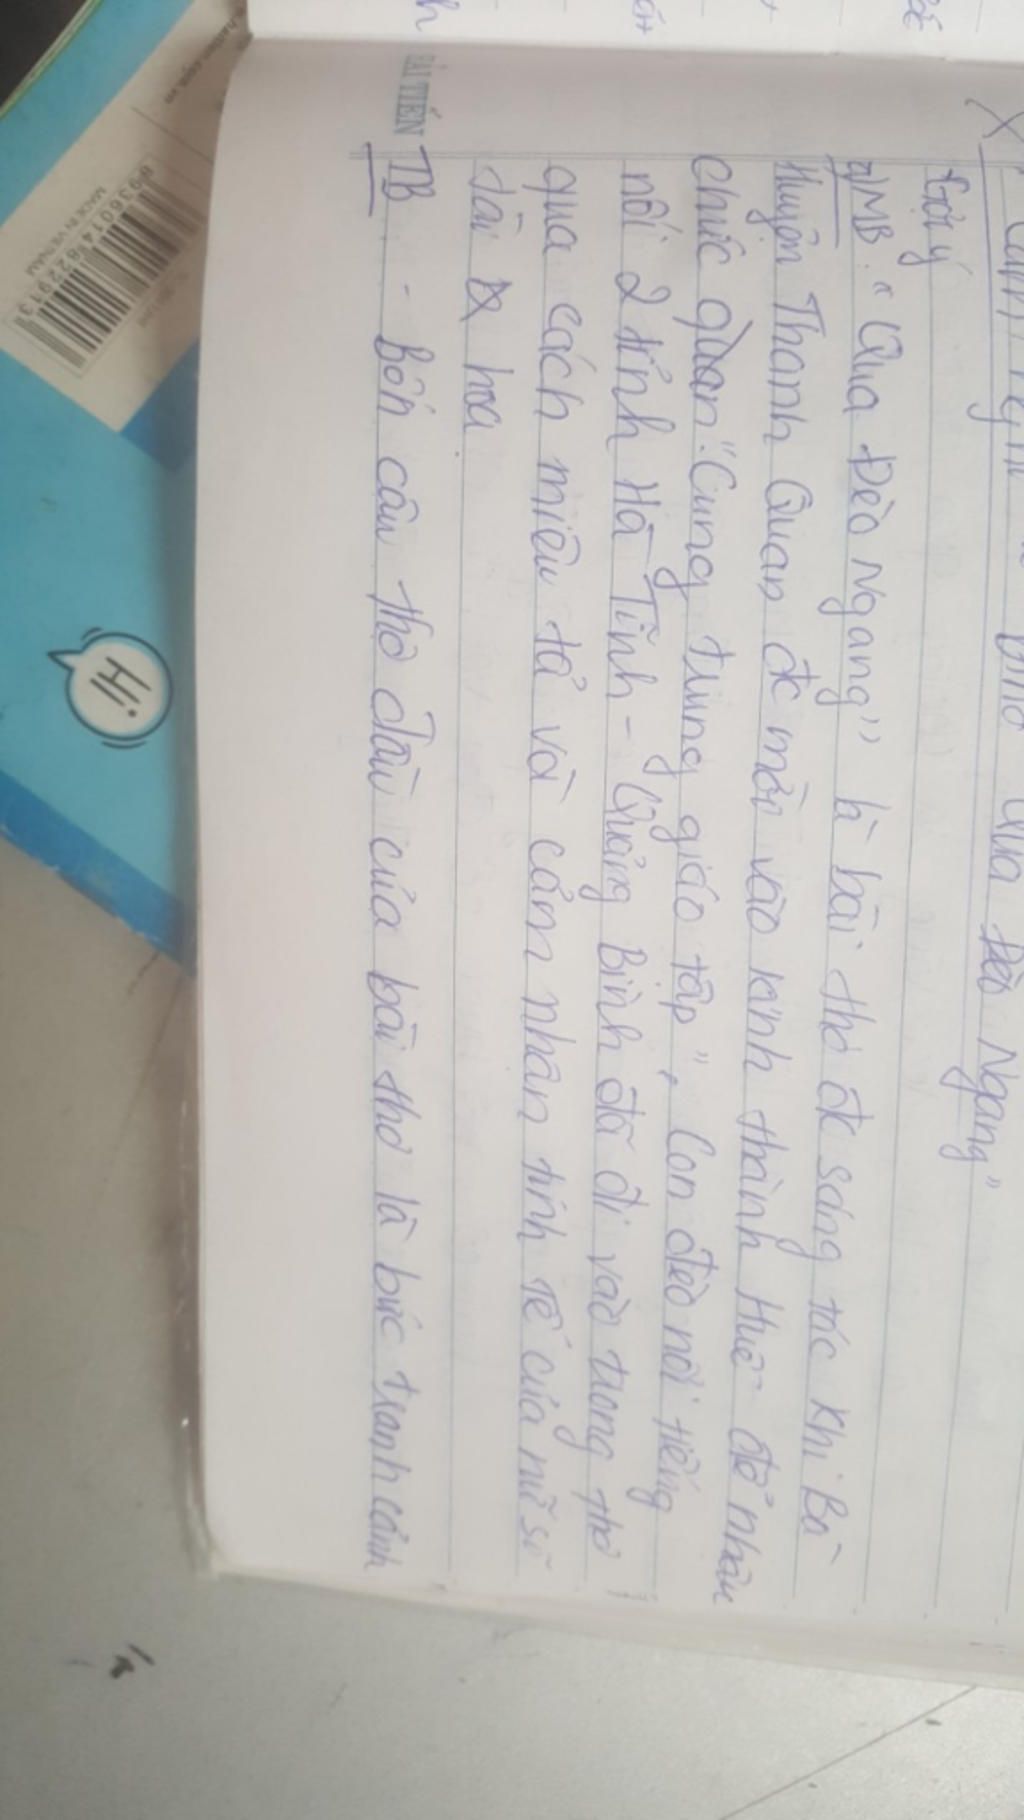 Qua Đèo Ngang"
Gợi ý
a) MB: "Qua Đèo Ngang" là bài thơ đc sáng tác khi Bà
Huyện Thanh Quan đc mời vào kinh thành Huế để nhận
chức quan: "Cung trung giáo tập", Con đèo nổi tiếng
nối 2 tỉnh Hà Tĩnh - Quảng Bình đã đi vào trong thơ
qua cách miêu tả và cảm nhận tinh tế của nữ sĩ
tài hoa
TB - Bốn câu thơ đầu của bài thơ là bức tranh cảnh
BÀI TIẾN
8936014822913
MADE IN VIETNAM
Hi.